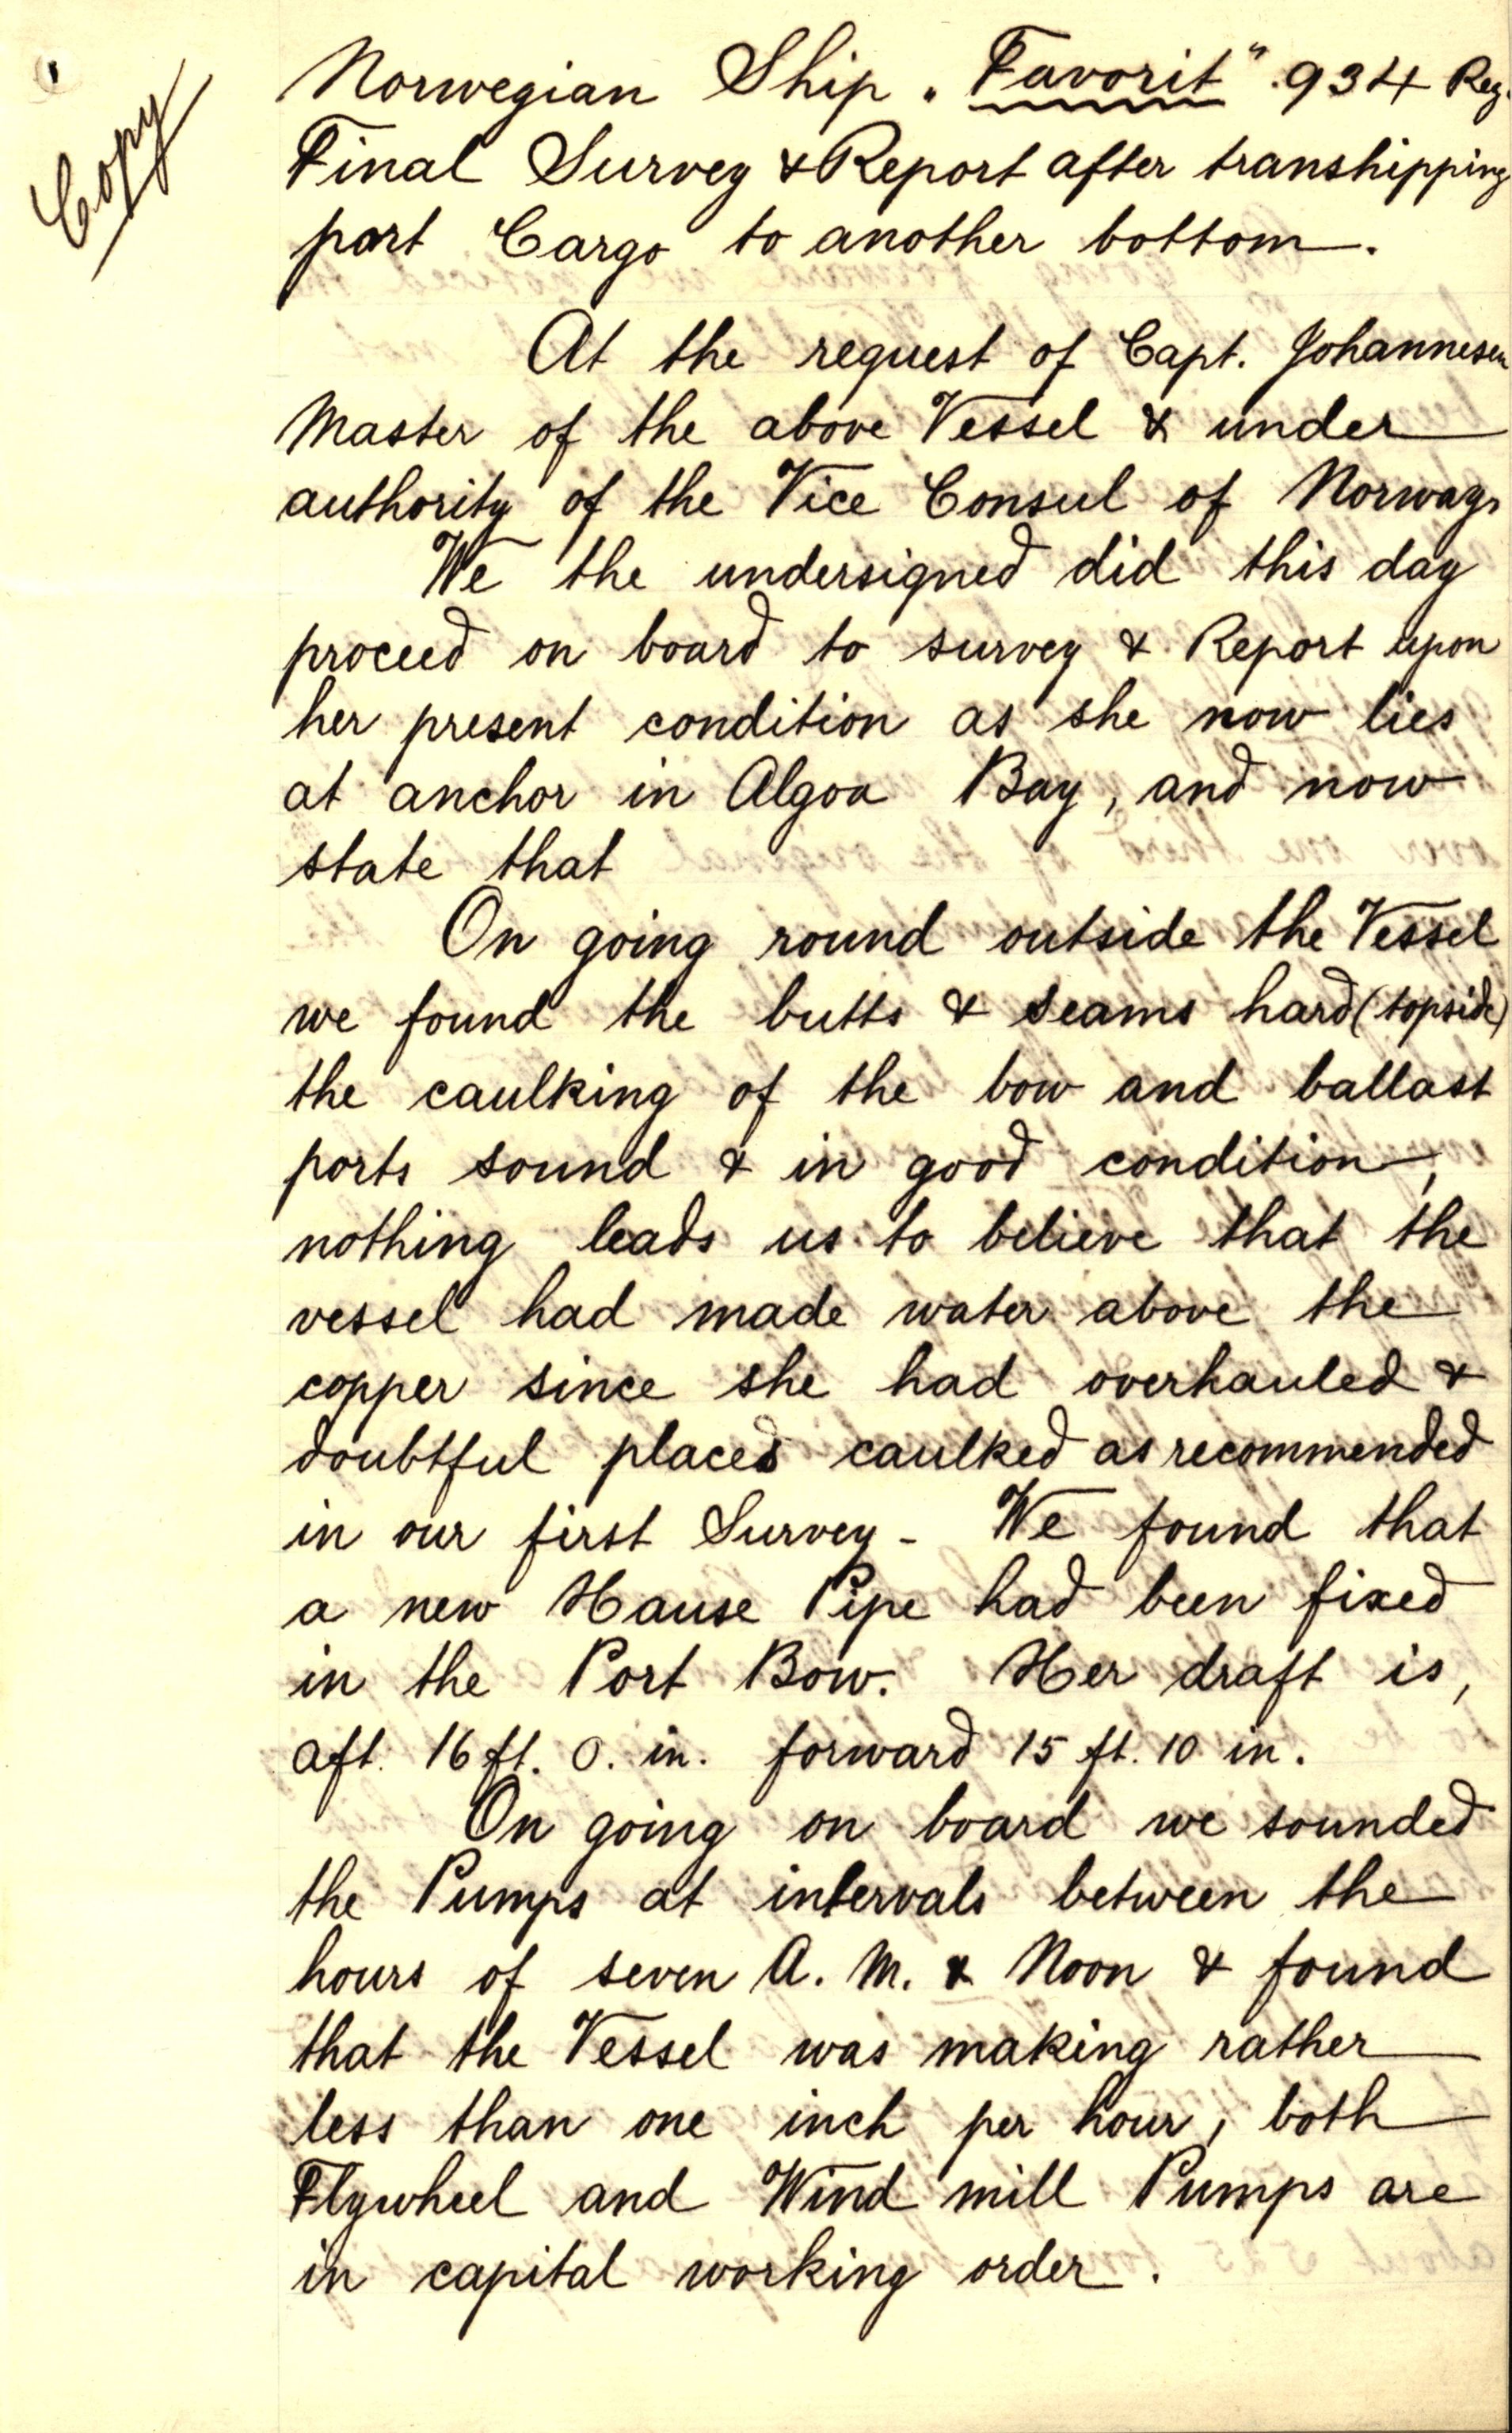 Copy
Norwegian Ship „Favorit" 934 Reg.
Final Survey & Report after transhipping
part Cargo to another bottom.
At the request of Capt. Johannesen
Master of the above Vessel & under
authority of the Vice Consul of Norway.
We the undersigned did this day
proceed on board to survey & Report upon
her present condition as she now lies
at anchor in Algoa Bay, and now
state that
On going round outside the Vessel
we found the butts & seams hard (topside)
the caulking of the bow and ballast
ports sound & in good condition,
nothing leads us to believe that the
vessel had made water above the
copper since she had overhauled &
doubtful places caulked as recommended
in our first Survey - We found that
a new Hause Pipe had been fixed
in the Port Bow. Her draft is,
aft. 16 ft. 0. in. forward 15 ft. 10 in.
On going on board we sounded
the Pumps at intervals between the
hours of seven A. M. & Noon & found
that the Vessel was making rather
less than one inch per hour, both
Flywheel and Wind mill Pumps are
in capital working order.